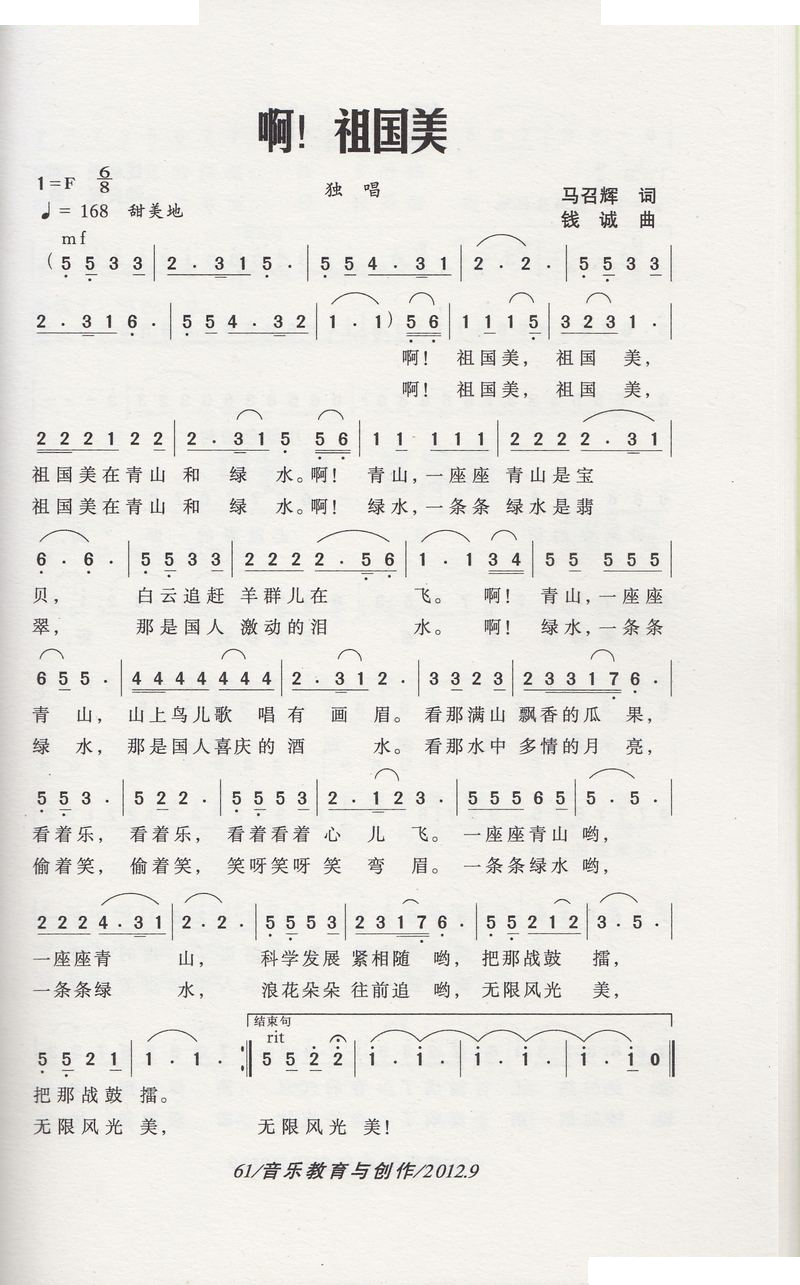 啊！祖国美
1=F 6/8
独 唱
马召辉 词
♩= 168 甜美地
钱 诚 曲
mf
(5 5 3 3 | 2 · 3 1 5 · | 5 5 4 · 3 1 | 2 · 2 · | 5 5 3 3 |
2 · 3 1 6 · | 5 5 4 · 3 2 | 1 · 1) 5 6 | 1 1 1 5 | 3 2 3 1 · |
啊！ 祖国美， 祖国 美，
啊！ 祖国美， 祖国 美，
2 2 2 1 2 2 | 2 · 3 1 5 5 6 | 1 1 1 1 1 | 2 2 2 2 · 3 1 |
祖国美在青山 和 绿 水。啊！ 青山，一座座 青山是宝
祖国美在青山 和 绿 水。啊！ 绿水，一条条 绿水是翡
6 · 6 · | 5 5 3 3 | 2 2 2 2 · 5 6 | 1 · 1 3 4 | 5 5 5 5 5 |
贝， 白云追赶 羊群儿在 飞。 啊！ 青山，一座座
翠， 那是国人 激动的泪 水。 啊！ 绿水，一条条
6 5 5 · | 4 4 4 4 4 4 4 | 2 · 3 1 2 · | 3 3 2 3 | 2 3 3 1 7 6 · |
青 山， 山上鸟儿歌 唱 有 画 眉。 看那满山 飘香的瓜 果，
绿 水， 那是国人喜庆的 酒 水。 看那水中 多情的月 亮，
5 5 3 · | 5 2 2 · | 5 5 5 3 | 2 · 1 2 3 · | 5 5 5 6 5 | 5 · 5 · |
看着乐， 看着乐， 看着看着 心 儿 飞。 一座座青山 哟，
偷着笑， 偷着笑， 笑呀笑呀 笑 弯 眉。 一条条绿水 哟，
2 2 2 4 · 3 1 | 2 · 2 · | 5 5 5 3 | 2 3 1 7 6 · | 5 5 2 1 2 | 3 · 5 · |
一座座青 山， 科学发展 紧相随 哟， 把那战鼓 擂，
一条条绿 水， 浪花朵朵 往前追 哟， 无限风光 美，
结束句
rit
5 5 2 1 | 1 · 1 · :‖ 5 5 2 2 | i · i · | i · i · | i · i · | i · i 0 ‖
把那战鼓 擂。
无限风光 美， 无限风光 美！
61/音乐教育与创作/2012.9